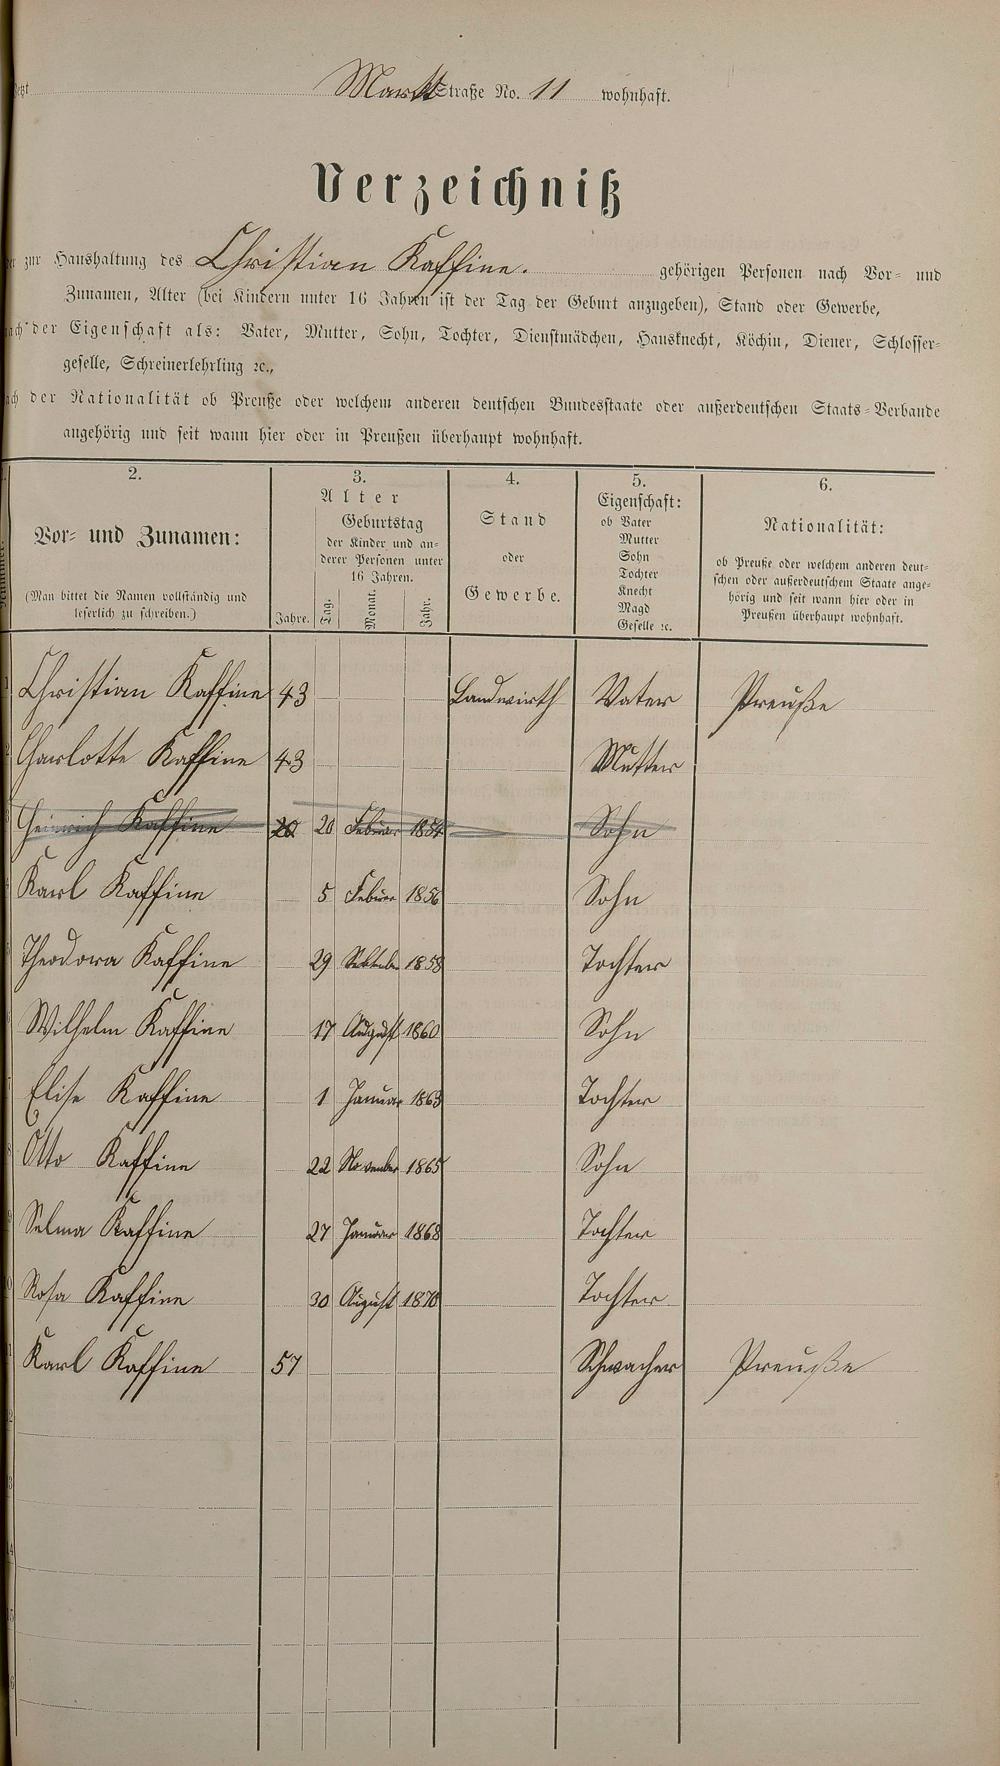 jetzt Markt Straße No. 11 wohnhaft.
Verzeichniß
der zur Haushaltung des Christian Kaffine. gehörigen Personen nach Vor- und
Zunamen, Alter (bei Kindern unter 16 Jahren ist der Tag der Geburt anzugeben), Stand oder Gewerbe,
nach der Eigenschaft als: Vater, Mutter, Sohn, Tochter, Dienstmädchen, Hausknecht, Köchin, Diener, Schlosser-
geselle, Schreinerlehrling ꝛc.,
nach der Nationalität ob Preuße oder welchem anderen deutschen Bundesstaate oder außerdeutschen Staats-Verbande
angehörig und seit wann hier oder in Preußen überhaupt wohnhaft.
2.
Vor- und Zunamen:
(Man bittet die Namen vollständig und
leserlich zu schreiben.)
3.
Alter
Jahre.
Geburtstag
der Kinder und an-
derer Personen unter
16 Jahren.
Tag. Monat. Jahr.
4.
Stand
oder
Gewerbe.
5.
Eigenschaft:
ob Vater
Mutter
Sohn
Tochter
Knecht
Magd
Geselle ꝛc.
6.
Nationalität:
ob Preuße oder welchem anderen deut-
schen oder außerdeutschem Staate ange-
hörig und seit wann hier oder in
Preußen überhaupt wohnhaft.
1 Christian Kaffine 43 Landwirth Vater Preuße
2 Charlotte Kaffine 43 Mutter
3 Heinrich Kaffine 20 20 Februar 1854 Sohn
4 Karl Kaffine 5 Februar 1856 Sohn
5 Theodora Kaffine 29 1858 Tochter
6 Wilhelm Kaffine 17 August 1860 Sohn
7 Elise Kaffine 1 Januar 1863 Tochter
8 Otto Kaffine 22 November 1865 Sohn
9 Selma Kaffine 27 Januar 1868 Tochter
10 Rosa Kaffine 30 August 1870 Tochter
11 Karl Kaffine 57 Preuße
12
13
14
15
16